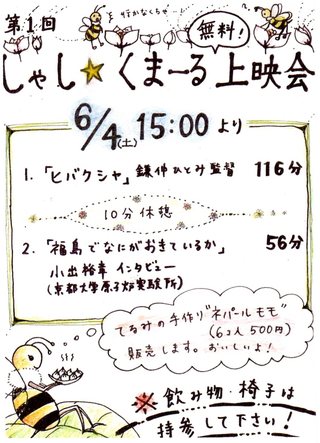 行かなくちゃ
第1回
無料!
しゃし★くまーる上映会
6/4(土) 15:00 より
1.「ヒバクシャ」鎌仲ひとみ監督 116分
10分 休憩
2.「福島でなにがおきているか」 56分
小出裕章 インタビュー
(京都大学原子炉実験所)
てるみの手作り"ネパール モモ"
(6コ入 500円)
販売します。おいしいよ!
※飲み物・椅子は
持参して下さい!